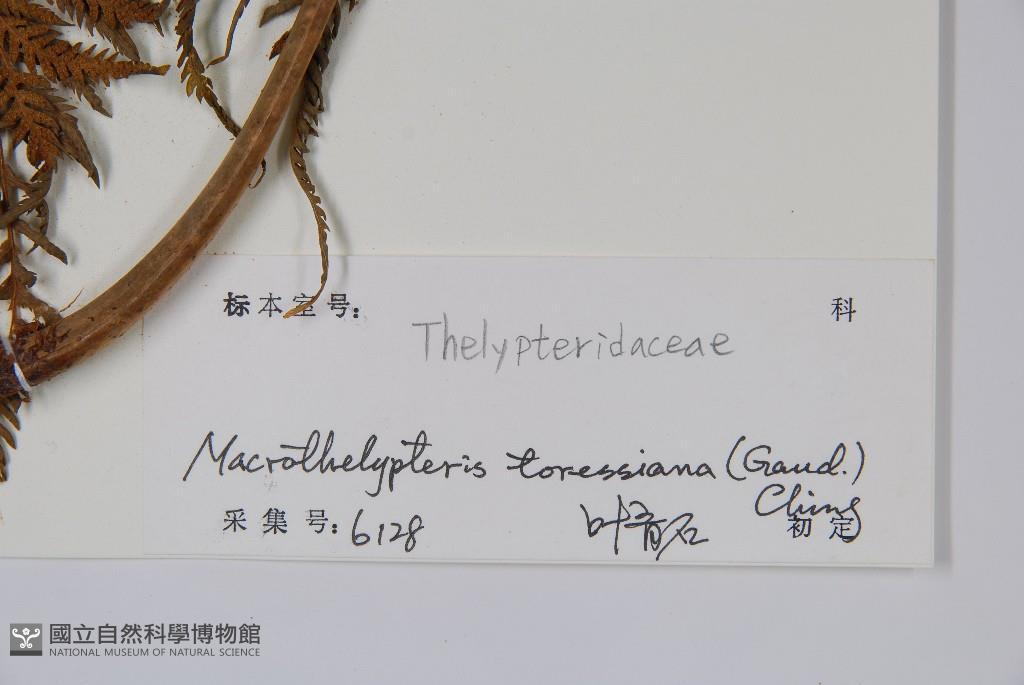 标本室号: 科
Thelypteridaceae
Macrothelypteris toressiana (Gaud.)
Ching
采集号: 6128 叶育石 初定
國立自然科學博物館
NATIONAL MUSEUM OF NATURAL SCIENCE